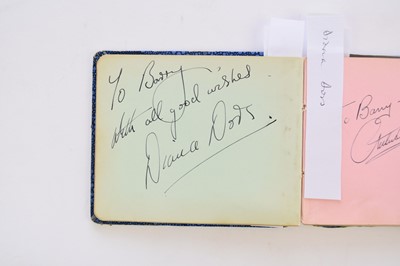 To Barry,
With all good wishes.
Diana Dors.
Diana Dors
To Barry